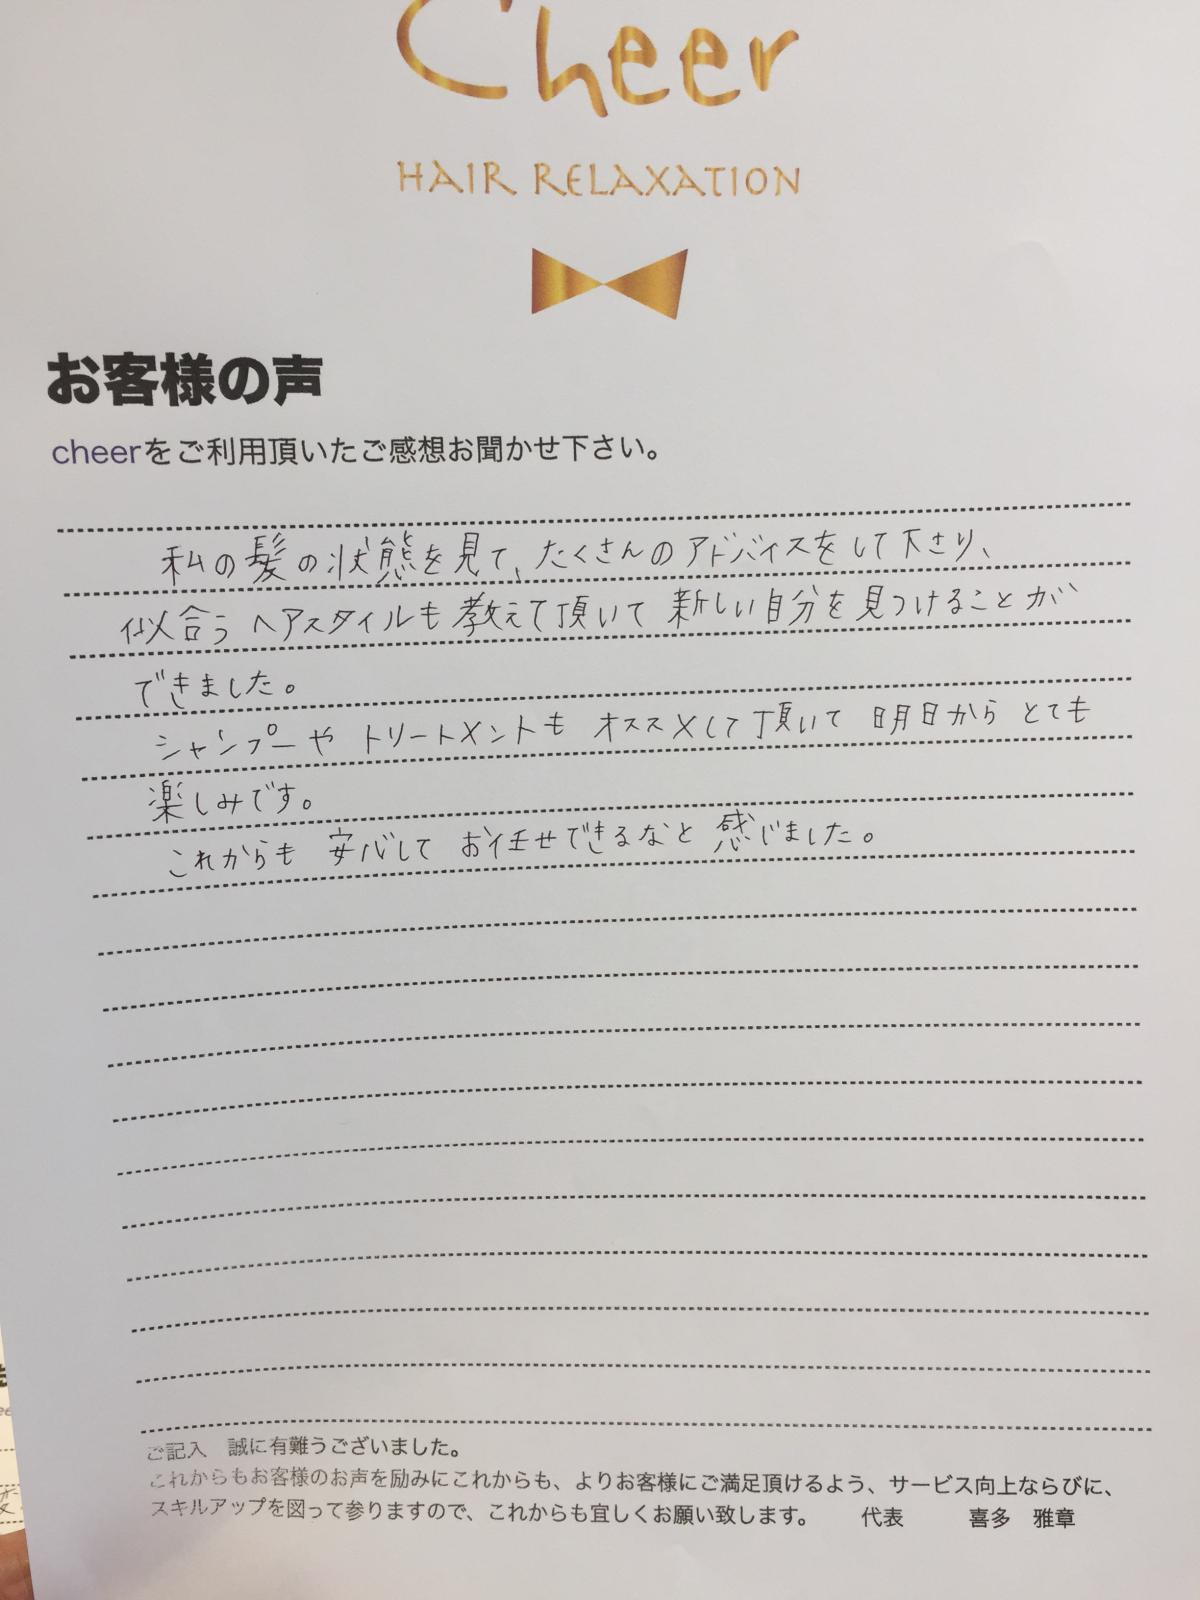 Cheer
HAIR RELAXATION
お客様の声
cheerをご利用頂いたご感想お聞かせ下さい。
私の髪の状態を見て、たくさんのアドバイスをして下さり、
似合うヘアスタイルも教えて頂いて新しい自分を見つけることが
できました。
シャンプーやトリートメントもオススメして頂いて明日からとても
楽しみです。
これからも安心してお任せできるなと感じました。
ご記入　誠に有難うございました。
これからもお客様のお声を励みにこれからも、よりお客様にご満足頂けるよう、サービス向上ならびに、
スキルアップを図って参りますので、これからも宜しくお願い致します。　代表　喜多　雅章